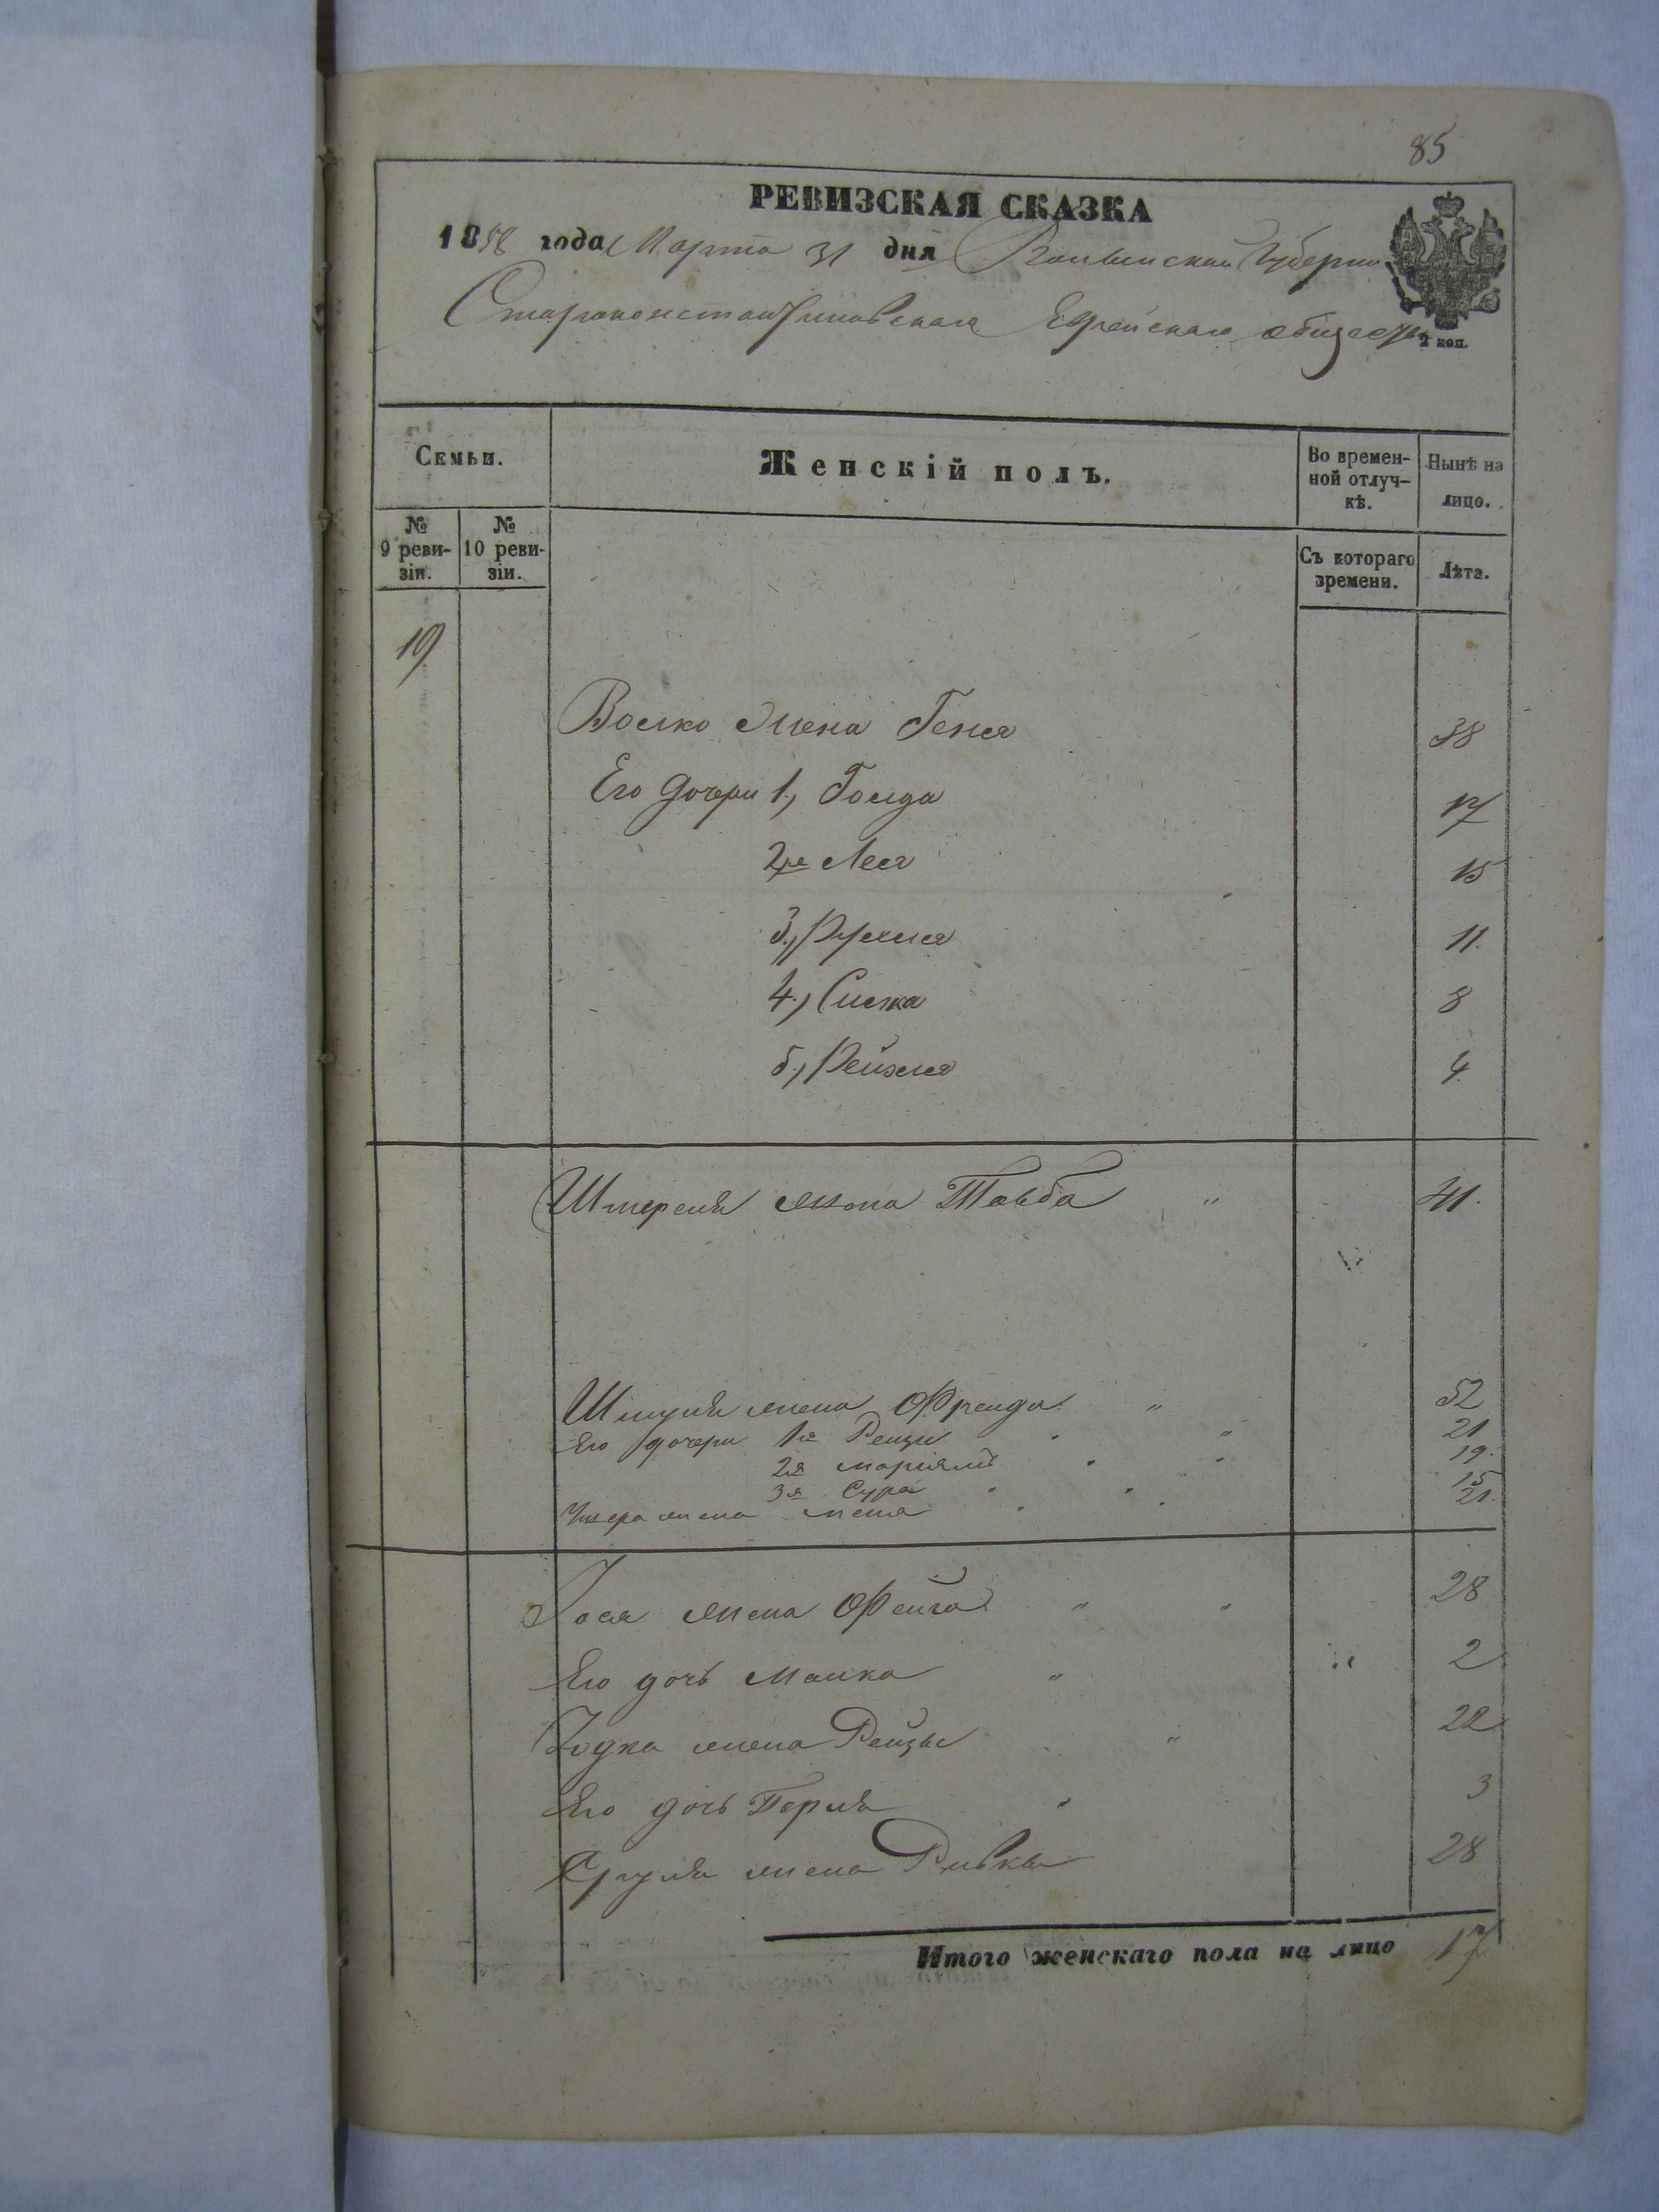 85
РЕВИЗСКАЯ СКАЗКА
1858 года Марта 31 дня Волынской Губернии
Староконстантиновскаго Еврейскаго общества
2 коп.
Семьи.
Женскій полъ.
Во времен-
ной отлуч-
кѣ.
Нынѣ на
лицо.
№
9 реви-
зіи.
№
10 реви-
зіи.
Съ котораго
времени.
Лѣта.
19
Волко жена Геня 38
Его дочери 1., Голда 17
2я Лея 15
3., Рухля 11.
4., Сижа 8
5., Рейзля 4
Шмереля жена Тавба " 41.
Шмуля жена Фрейда " 52
Его дочери 1я Рейзи " 21
2я Маріямъ " 19.
3я Сура " 15
жена Меня 21.
Іося жена Фейга " " 28
Его дочь Малка " 2
Іодка жена Рейзы " 22
Его дочь Перля " 3
Сруля жена Ривка 28
Итого женскаго пола на лицо 17